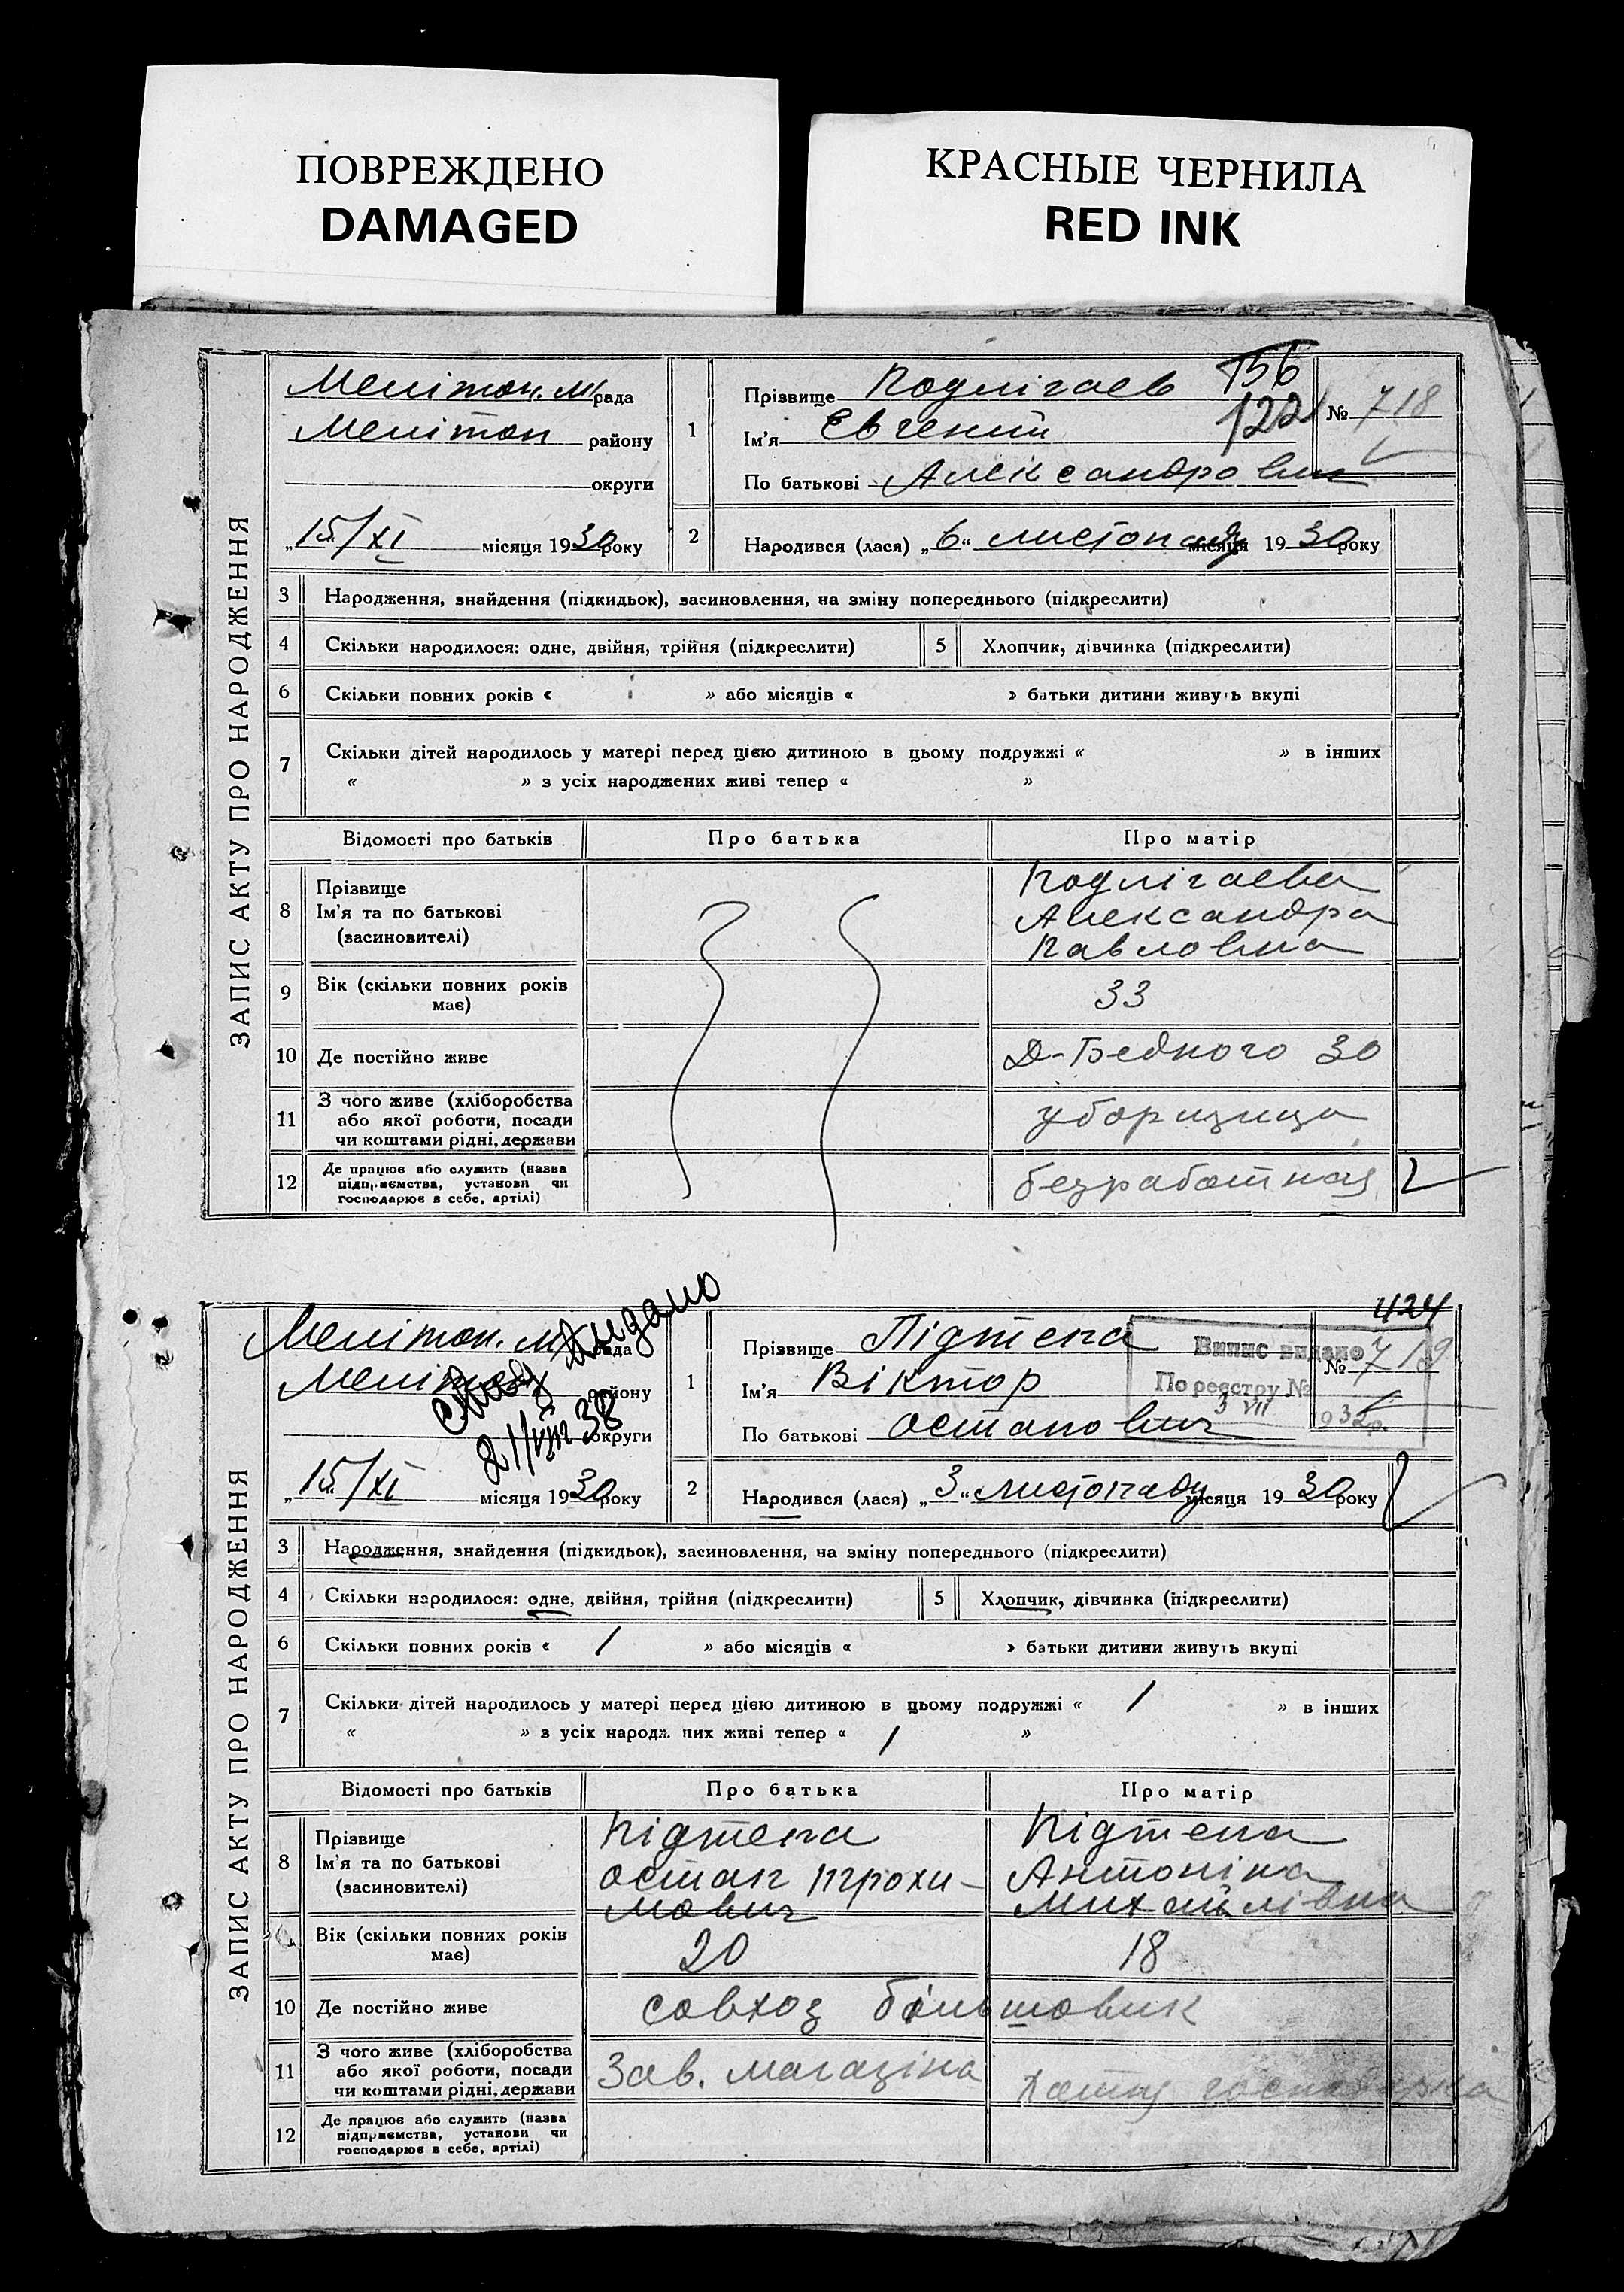 ПОВРЕЖДЕНО
DAMAGED
КРАСНЫЕ ЧЕРНИЛА
RED INK
ЗАПИС АКТУ ПРО НАРОДЖЕННЯ
Мелітоп. М/рада
Мелітоп району
округи
„15“/XI місяця 1930 року
1
Прізвище Подлігаев
Ім'я Євгений
По батькові Александрович
156
1221
№ 718
2
Народився (лася) „6“ листопаду місяця 1930 року
3 Народження, знайдення (підкидьок), засиновлення, на зміну попереднього (підкреслити)
4 Скільки народилося: одне, двійня, трійня (підкреслити) 5 Хлопчик, дівчинка (підкреслити)
6 Скільки повних років « » або місяців « » батьки дитини живуть вкупі
7 Скільки дітей народилось у матері перед цією дитиною в цьому подружжі « » в інших
« » з усіх народжених живі тепер « »
Відомості про батьків Про батька Про матір
8 Прізвище Ім'я та по батькові (засновителі)
Подлігаева
Александра
Павловна
9 Вік (скільки повних років має) 33
10 Де постійно живе Д-Бедного 30
11 З чого живе (хліборобства або якої роботи, посади чи коштами рідні, держави уборщица
12 Де працює або служить (назва підприємства, установи чи господарює в себе, артілі) безработная
ЗАПИС АКТУ ПРО НАРОДЖЕННЯ
Мелітоп. М/рада
Меліт району
округи
видано
21/VIII 38
„15“/XI місяця 1930 року
1
Прізвище Підтепа
Ім'я Віктор
По батькові Остапович
424
№ 719
Випис видано
По реєстру №
3 VII 1932р.
2
Народився (лася) „3“ листопаду місяця 1930 року
3 Народження, знайдення (підкидьок), засиновлення, на зміну попереднього (підкреслити)
4 Скільки народилося: одне, двійня, трійня (підкреслити) 5 Хлопчик, дівчинка (підкреслити)
6 Скільки повних років « 1 » або місяців « » батьки дитини живуть вкупі
7 Скільки дітей народилось у матері перед цією дитиною в цьому подружжі « 1 » в інших
« » з усіх народжених живі тепер « 1 »
Відомості про батьків Про батька Про матір
8 Прізвище Ім'я та по батькові (засиновителі)
Підтепа Підтепа
Остап Прохи- Антоніна
мович Михайлівна
Вік (скільки повних років має) 20 18
10 Де постійно живе совхоз більшовик
11 З чого живе (хліборобства або якої роботи, посади чи коштами рідні, держави Зав. магазіна господарка
12 Де працює або служить (назва підприємства, установи чи господарює в себе, артілі)